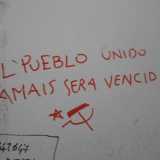 L PUEBLO UNIDO
AMAIS SERA VENCID